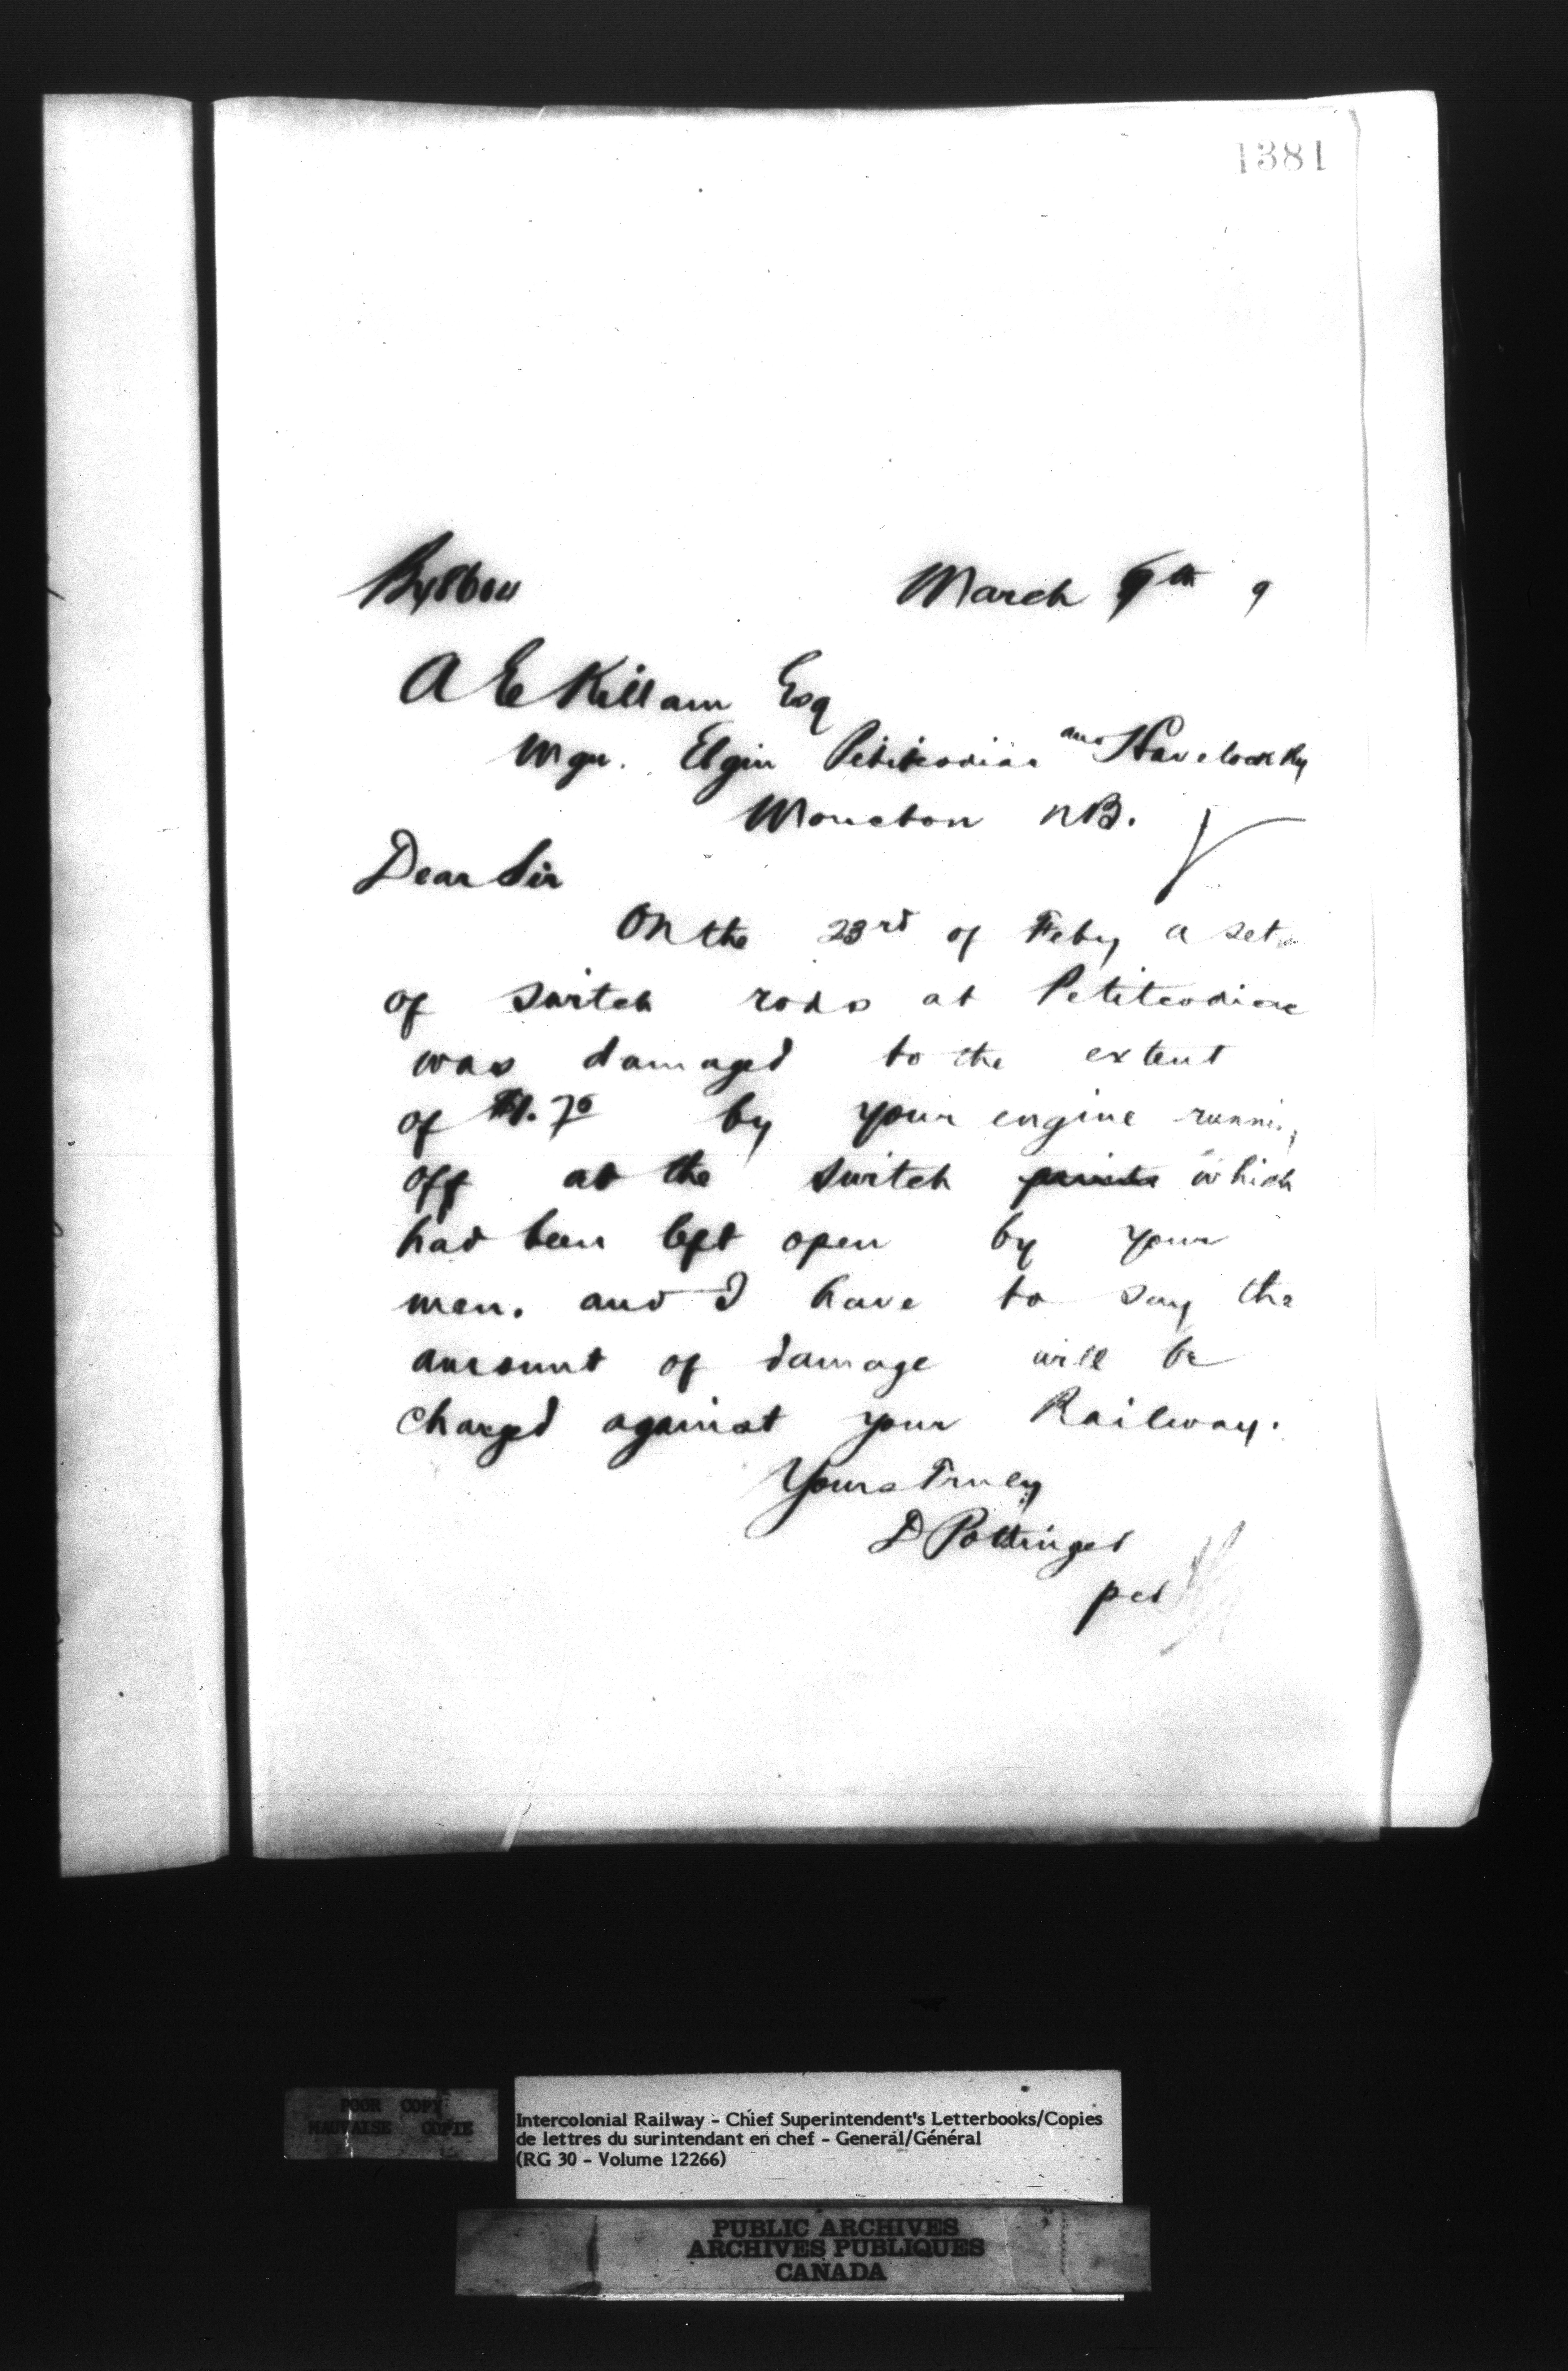 1381
March 9th 9
A E Killam Esq
Mgr. Elgin Petitcodiac and Havelock Ry
Moncton NB.
Dear Sir
On the 23rd of Feby a set
of switch rods at Petitcodiac
was damaged to the extent
of by your engine running
off at the switch points which
had been left open by your
men. and I have to say the
amount of damage will be
charged against your Railway.
Yours Truly
D Pottinger
per
POOR COPY
MAUVAISE COPIE
Intercolonial Railway - Chief Superintendent's Letterbooks/Copies
de lettres du surintendant en chef - General/Général
(RG 30 - Volume 12266)
PUBLIC ARCHIVES
ARCHIVES PUBLIQUES
CANADA